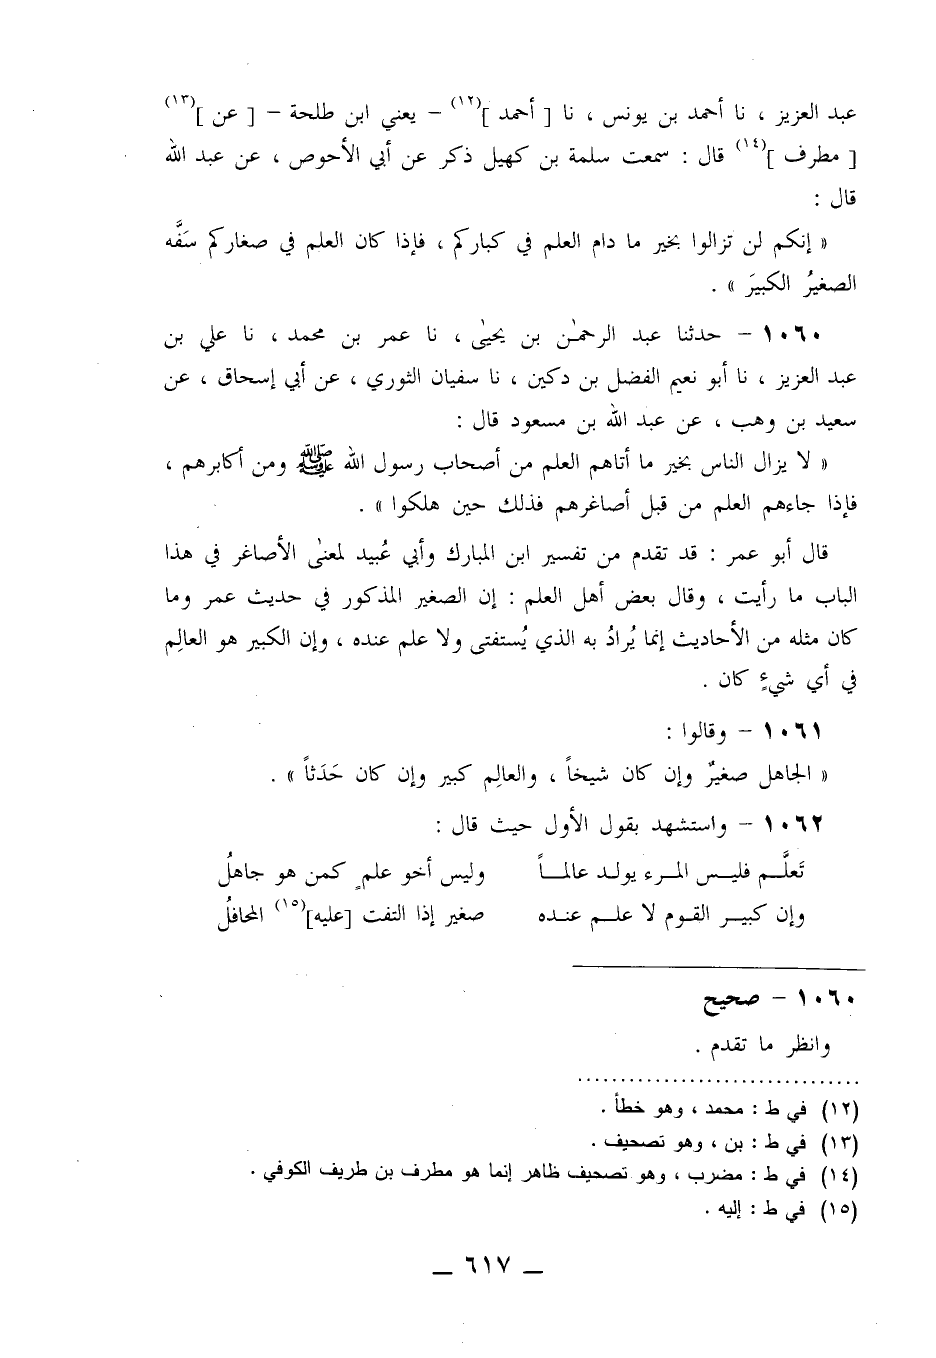 عبد العزيز ، نا أحمد بن يونس ، نا [ أحمد ](١٢) – يعني ابن طلحة – [ عن ](١٣)
[ مطرف ](١٤) قال : سمعت سلمة بن كهيل ذكر عن أبي الأحوص ، عن عبد الله
قال :
« إنكم لن تزالوا بخير ما دام العلم في كباركم ، فإذا كان العلم في صغاركم سَفَّه
الصغيرُ الكبيرَ » .
١٠٦٠ – حدثنا عبد الرحمٰن بن يحيٰى ، نا عمر بن محمد ، نا علي بن
عبد العزيز ، نا أبو نعيم الفضل بن دكين ، نا سفيان الثوري ، عن أبي إسحاق ، عن
سعيد بن وهب ، عن عبد الله بن مسعود قال :
« لا يزال الناس بخير ما أتاهم العلم من أصحاب رسول الله ﷺ ومن أكابرهم ،
فإذا جاءهم العلم من قبل أصاغرهم فذلك حين هلكوا » .
قال أبو عمر : قد تقدم من تفسير ابن المبارك وأبي عُبيد لمعنٰى الأصاغر في هذا
الباب ما رأيت ، وقال بعض أهل العلم : إن الصغير المذكور في حديث عمر وما
كان مثله من الأحاديث إنما يُرادُ به الذي يُستفتى ولا علم عنده ، وإن الكبير هو العالِم
في أي شيءٍ كان .
١٠٦١ – وقالوا :
« الجاهل صغيرٌ وإن كان شيخاً ، والعالِم كبير وإن كان حَدَثاً » .
١٠٦٢ – واستشهد بقول الأول حيث قال :
تَعلَّـم فليـس المـرء يولـد عالمـاً وليس أخو علمٍ كمن هو جاهلُ
وإن كبيـر القـوم لا علـم عنـده صغير إذا التفت [عليه](١٥) المحافلُ
١٠٦٠ – صحيح
وانظر ما تقدم .
(١٢) في ط : محمد ، وهو خطأ .
(١٣) في ط : بن ، وهو تصحيف .
(١٤) في ط : مضرب ، وهو تصحيف ظاهر إنما هو مطرف بن طريف الكوفي .
(١٥) في ط : إليه .
— ٦١٧ —